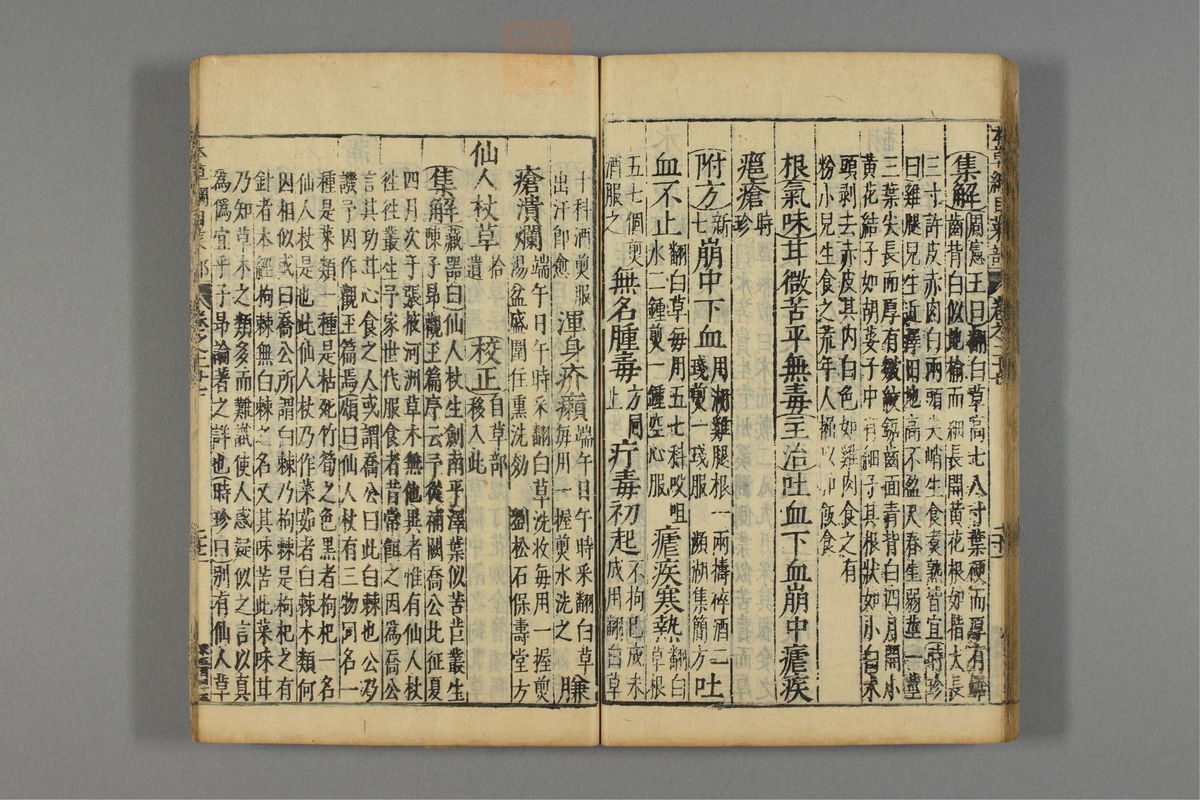 集解周憲王曰翻白草高七八寸葉硬而厚有鋸
齒背白似地榆而細長開黃花根如指大長
三寸許皮赤肉白兩頭尖峭生食煮熟皆宜時珍
曰雞腿兒生近澤田地高不盈尺春生弱莖一莖
三葉尖長而厚有皺紋鋸齒面青背白四月開小
黃花結子如胡荽子中有細子其根狀如小白朮
頭剥去赤皮其內白色如雞肉食之有
粉小兒生食之荒年人掘以和飯食
根氣味甘微苦平無毒主治吐血下血崩中瘧疾
癰瘡時珍
附方新七崩中下血用湖雞腿根一兩擣碎酒二琖煎一琖服 瀕湖集簡方吐
血不止翻白草每用五七科㕮咀水二鍾煎一鍾空心服 瘧疾寒熱翻白草根
五七個煎酒服之 無名腫毒方同上 疔毒初起不拘已成未成用翻白草
十科酒煎服出汗卽愈 渾身疥癩端午日午時采翻白草每用一握煎水洗之 臁
瘡潰爛端午日午時采翻白草洗收每用一握煎湯盆盛圍住熏洗效 劉松石保壽堂方
仙人杖草拾遺 校正自草部移入此
集解藏器曰仙人杖生劍南平澤葉似苦苣叢生
陳子昂觀玉篇序云予從補闕喬公北征夏
四月次于張掖河洲草木無他異者惟有仙人杖
徃徃叢生予家世代服食者昔常餌之因爲喬公
言其功甘心食之人或謂喬公曰此白棘也公乃
譏予因作觀玉篇焉頌曰仙人杖有三物同名一
種是菜類一種是枯死竹筍之色黑者枸杞一名
仙人杖是也此仙人杖乃作菜茹者白棘木類何
因相似或曰喬公所謂白棘乃枸棘是枸杞之有
針者本經枸棘無白棘之名又其味苦此菜味甘
乃知草木之類多而難識使人惑疑似之言以真
爲僞宜乎子昂論著之詳也時珍曰別有仙人草